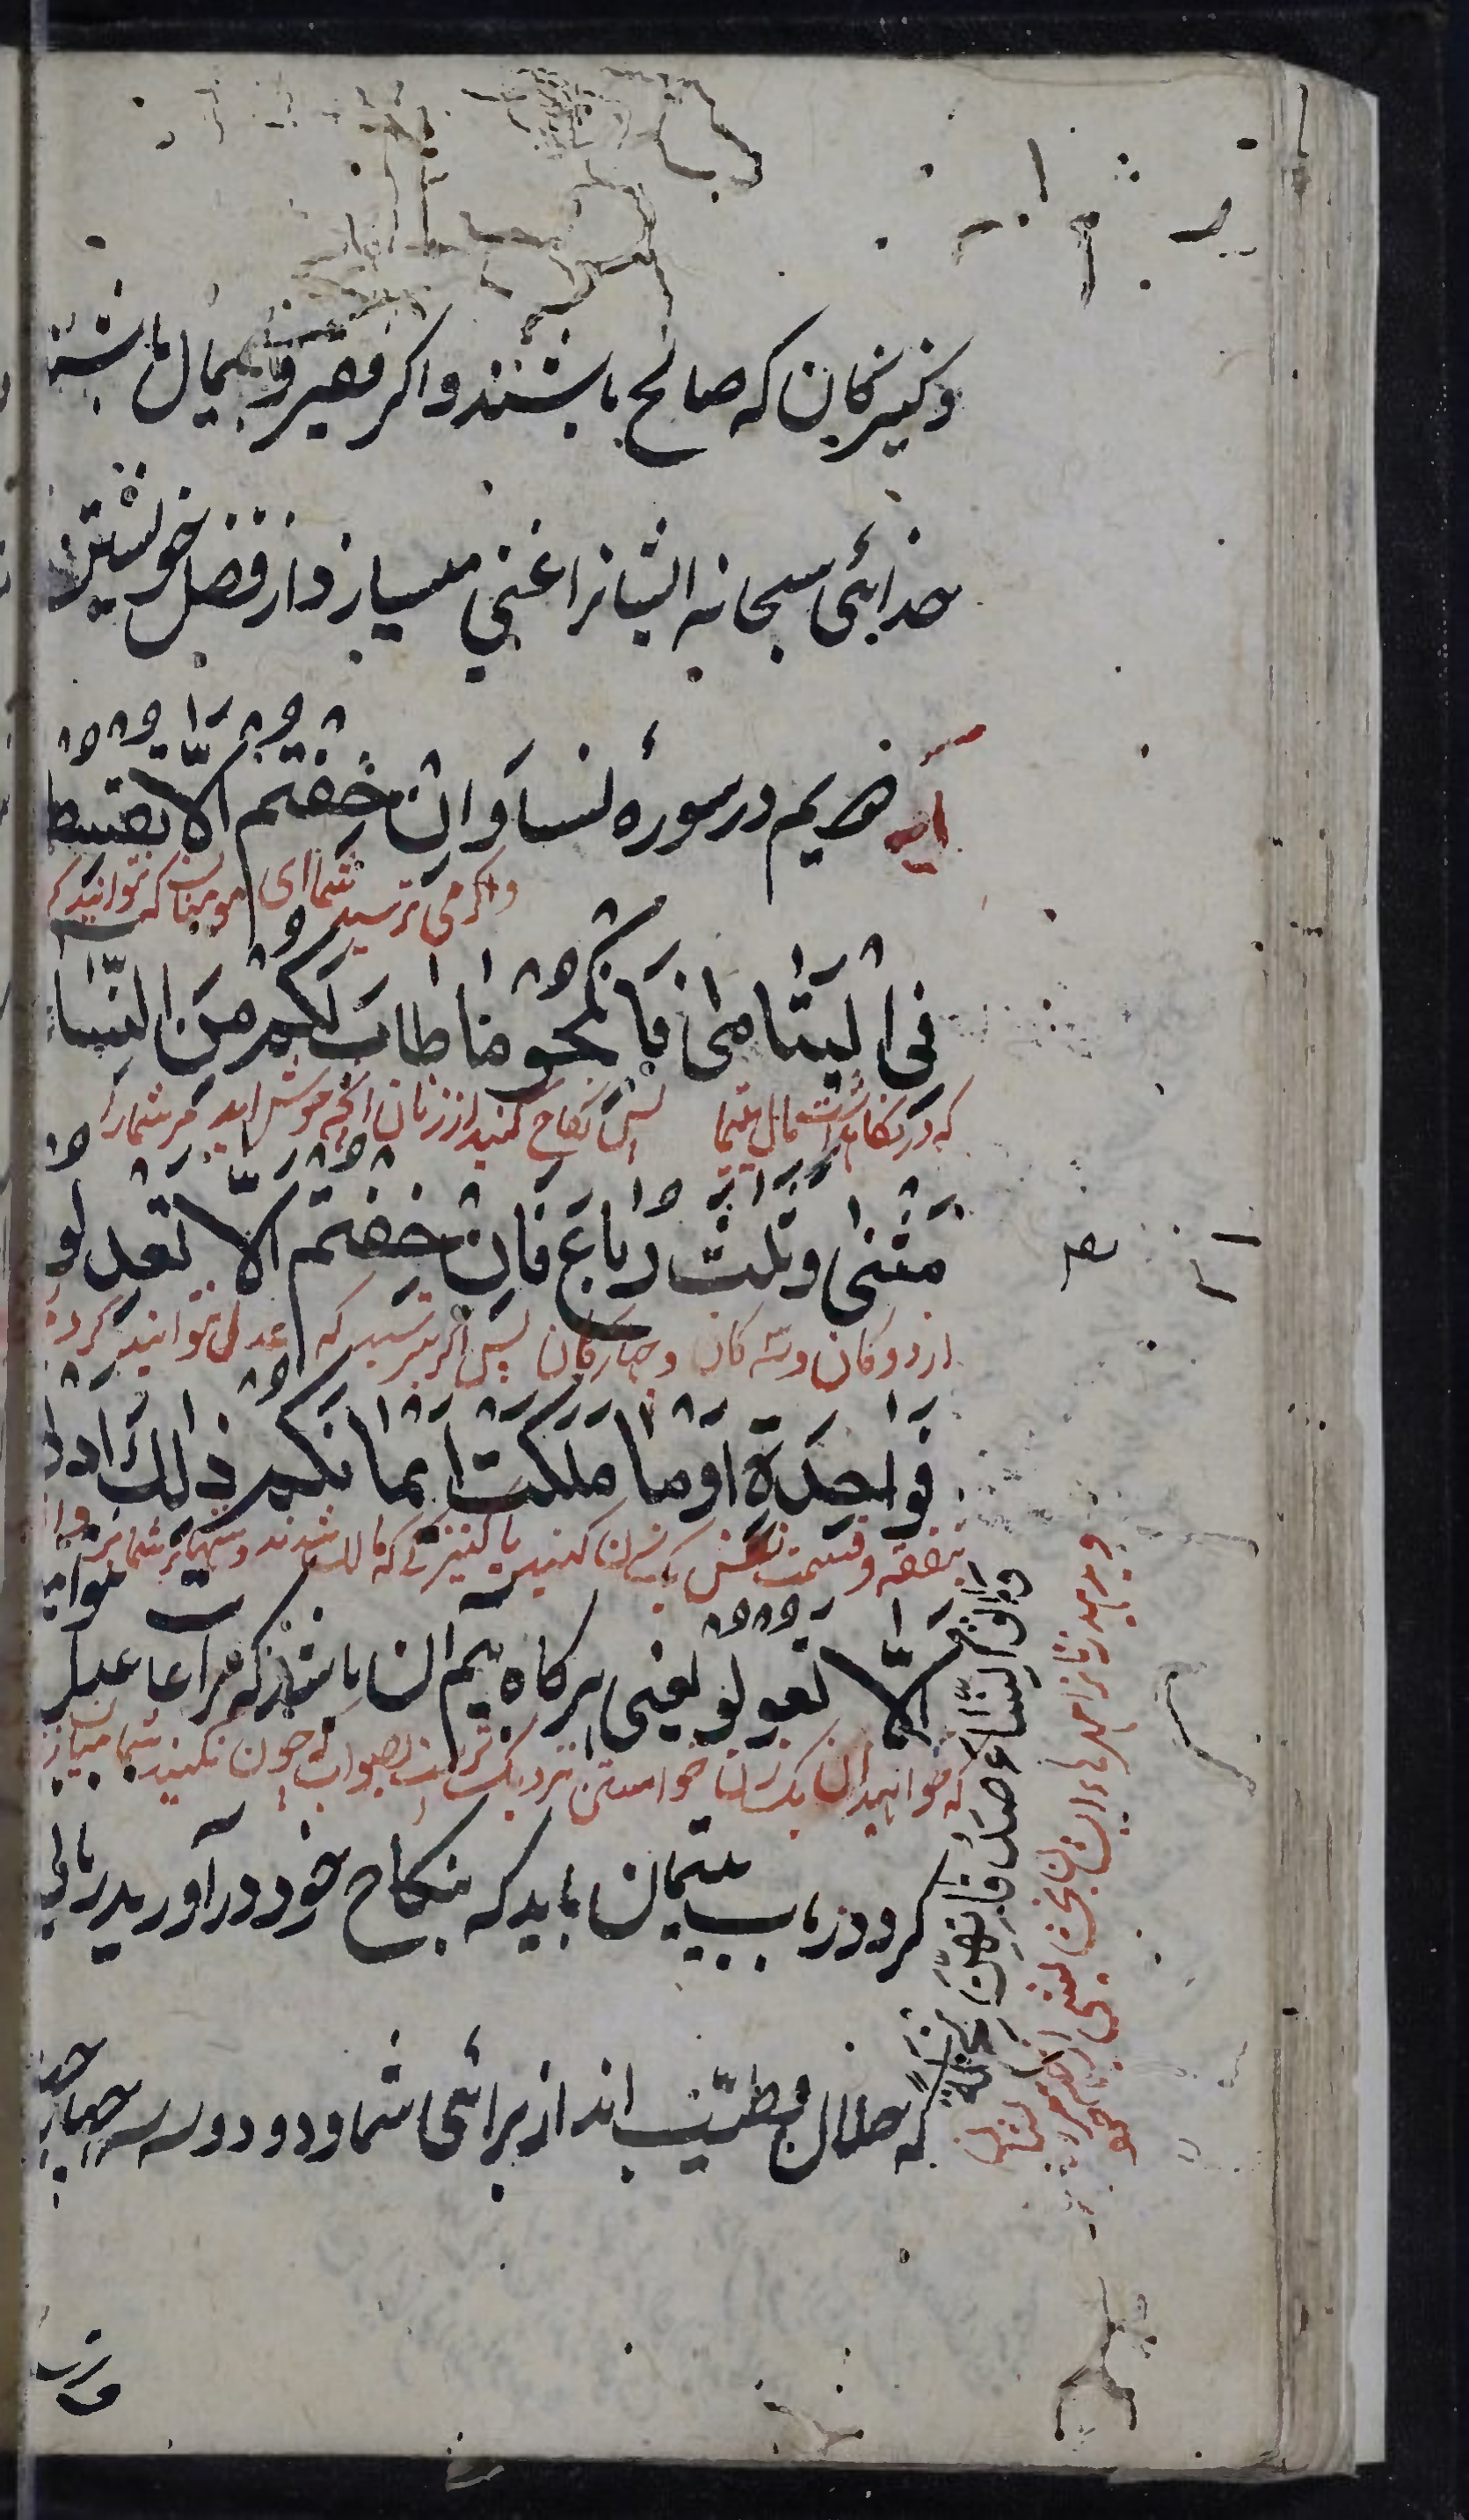 وکنیزکان که صالح باشند واکر فقیر وبیمال باشند
خدائی سبحانه ایشانرا غنی میسازد از فضل خویشتن
آیه دهم در سورهٔ نسا وَاِنْ خِفْتُمْ اَلَّا تُقْسِطُوا
واکر می ترسید شما ای مومنان که نتوانید که
فِی الْیَتَامٰی فَانْکِحُوْ مَا طَابَ لَکُمْ مِنَ النِّسَاءِ
که در نکاه داشت مال یتیما پس نکاح کنید از زنان آنچه خوش اید مر شمارا
مَثْنٰی وثُلٰثَ وَرُبَاعَ فَاِنْ خِفْتُمْ اَلَّا تَعْدِلُوْ
از دوکان وسه کان وچارکان پس اکر ترسید که عدل نتوانید کرد
فَوَاحِدَةً اَوْ مَا مَلَکَتْ اَیْمَانُکُمْ ذٰلِكَ اَدْنٰی
بنفقه وقسمت پس یک زن کنید یا کنیزکی که مالک شدند دستهای شما
اَلَّا تَعُوْلُوْ یعنی هرکاه بیم آن باشد که مراعات عدل نتوانید
که خواهید آن یک زن خواستن نزدیک تر است بصواب که چون نکنید شما
کرد در باب یتیمان باید که بنکاح خود درآورید زنانی
که حلال وطیّب اند از برائی شما ودو دو وسه سه چهار چهار
وَاٰتُو النِّسَاءَ صَدُقَاتِهِنَّ نِحْلَةً
وبدهید زنانرا مهرهاء ایشان